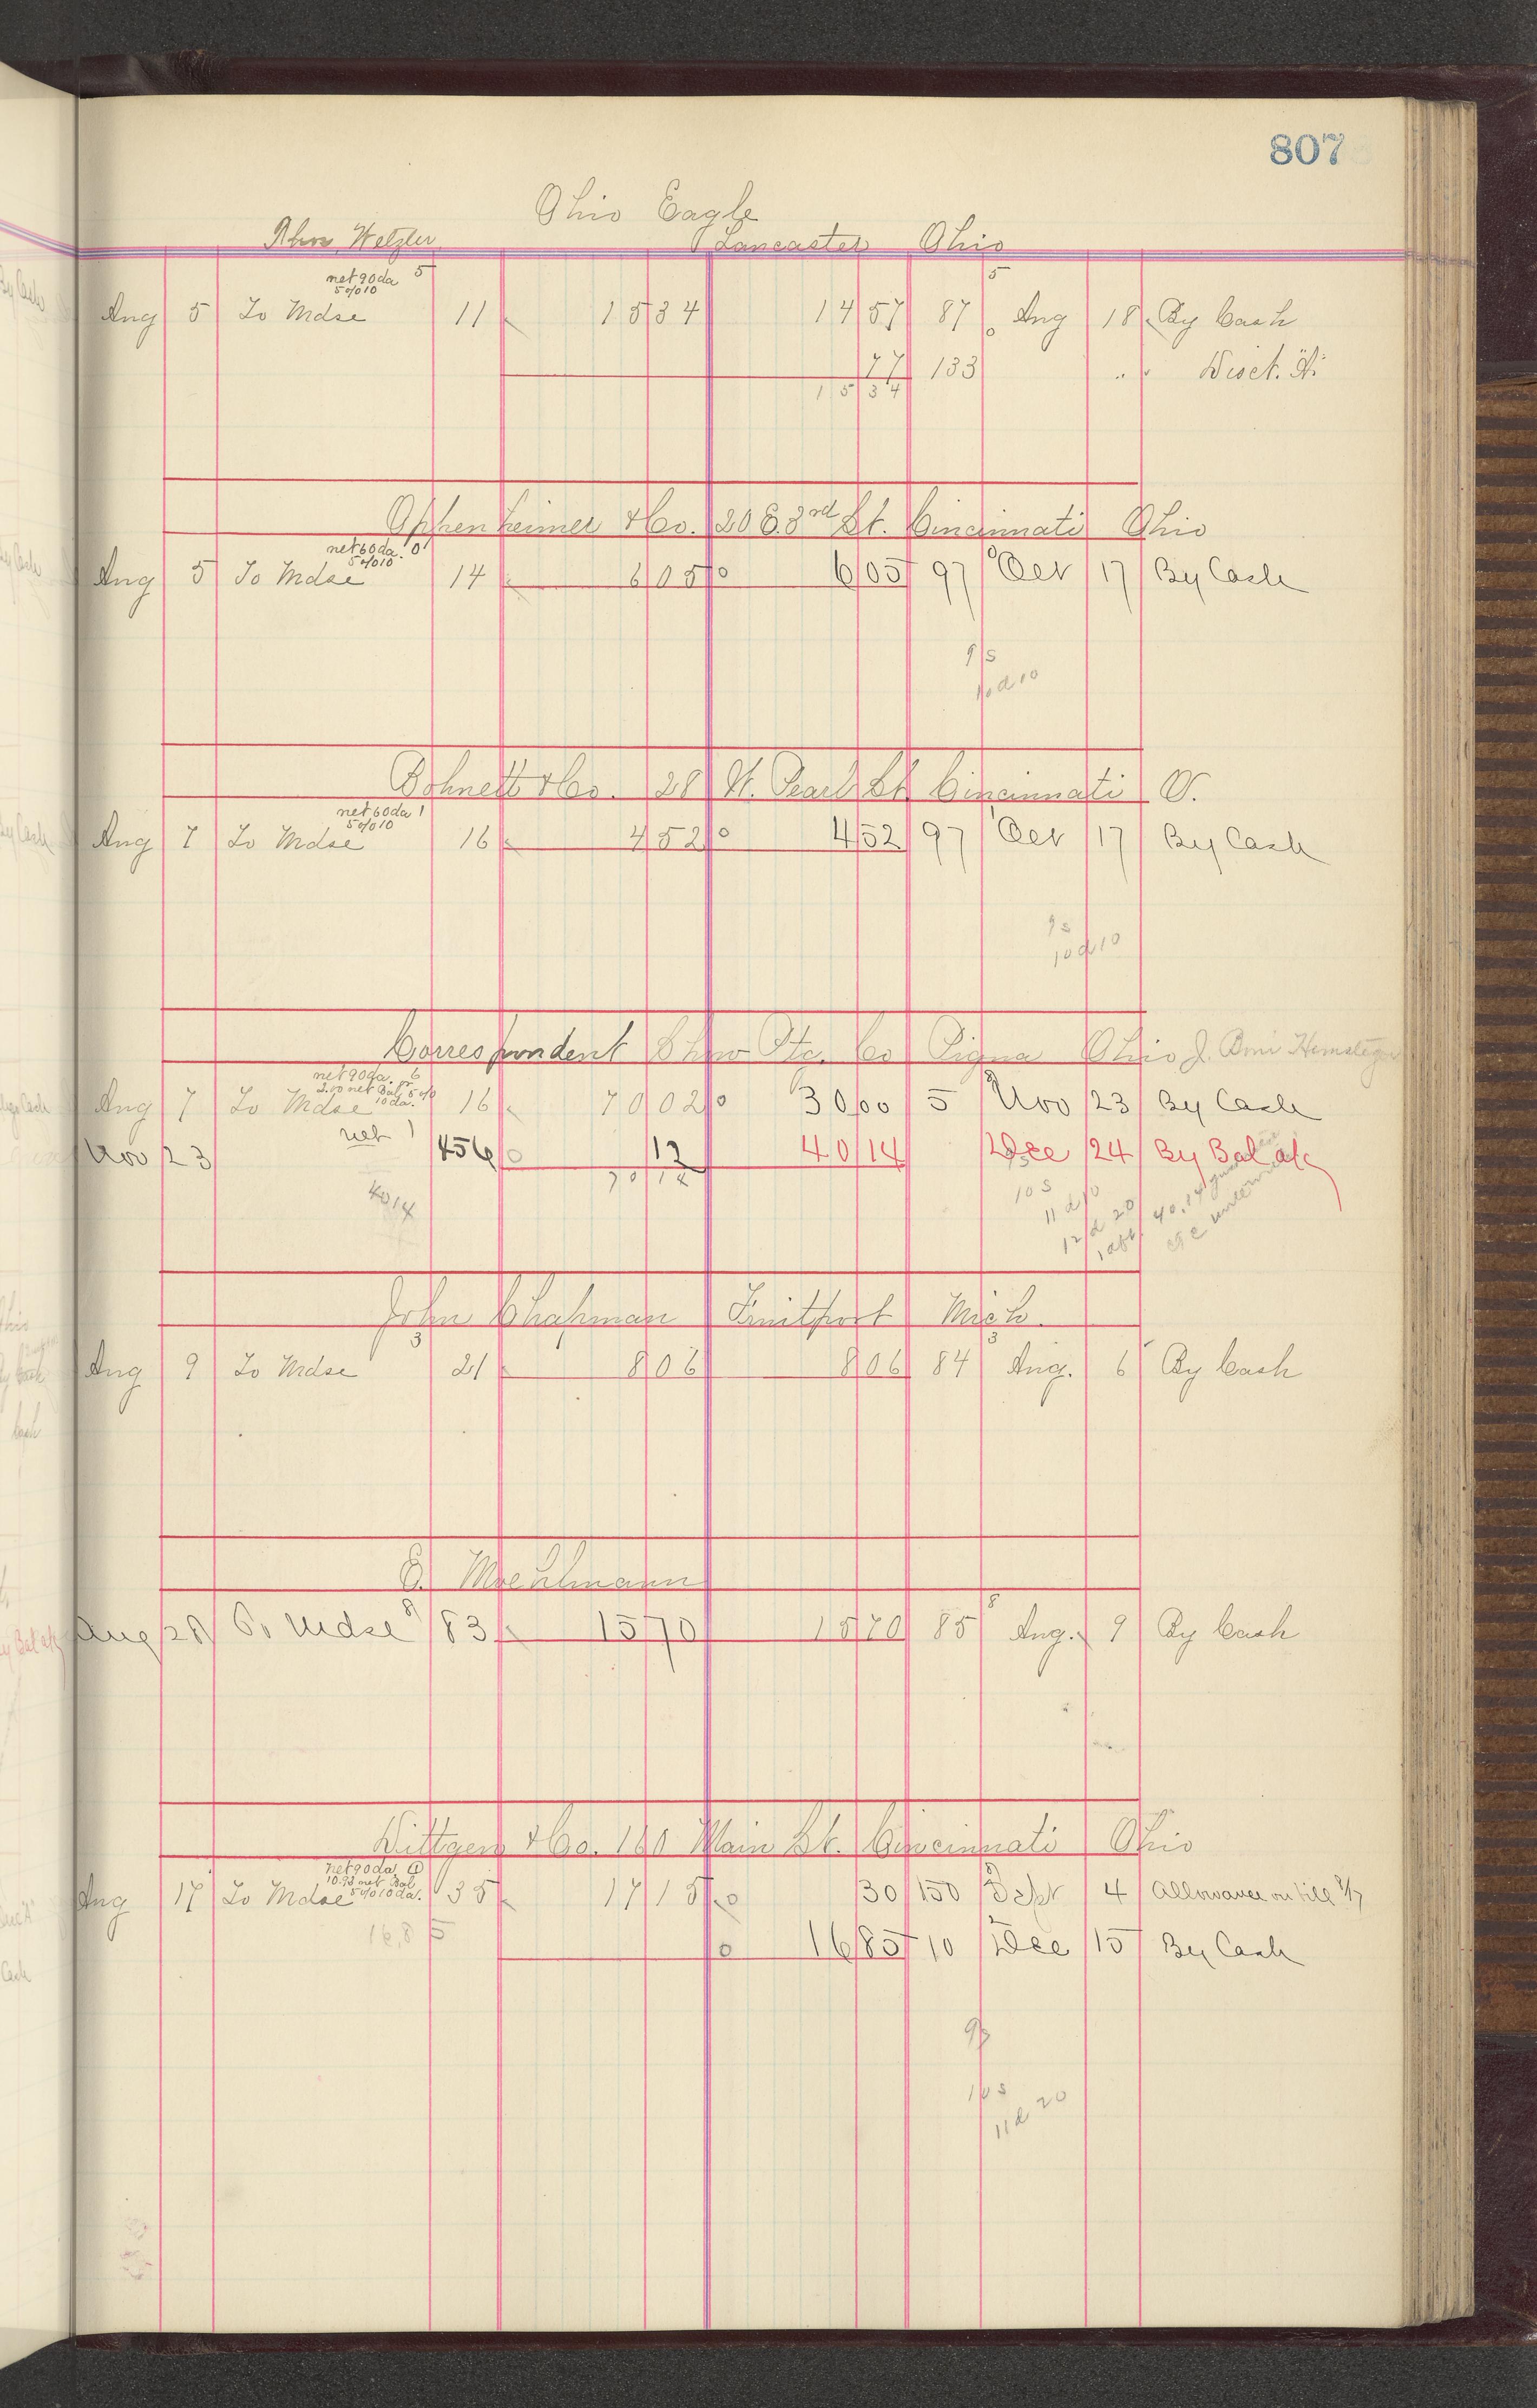 807
Ohio Eagle
Thos. Wetzler Lancaster Ohio
net 90 da 5 5
5 o/o 10
Aug 5 To Mdse 11 15 34 14 57 87 Aug 18 By Cash
77 133 " " Disct. "A"
15 34
Oppenheimer & Co. 20 E. 3rd St. Cincinnati Ohio
net 60 da. 0
5 o/o 10
Aug 5 To Mdse 14 6 05 0 6 05 97 Oct 17 By Cash
9 s
10 d 10
Bohnett & Co. 28 W. Pearl St. Cincinnati O.
net 60 da 1
5 o/o 10
Aug 7 To Mdse 16 4 52 0 4 52 97 Oct 17 By Cash
9 s
10 d 10
Correspondent Show Ptg. Co Piqua Ohio J. Boni Hemsteger
net 90 da. or 6
2.00 net Bal 5 o/o
10 da.
Aug 7 To Mdse 16 70 02 0 30 00 5 Nov 23 By Cash
Nov 23 net 1 456 0 12 40 14 Dec 24 By Bal a/c
70 14
40 14
10 s
11 d 10
12 d 20
40.14
John Chapman Fruitport Mich.
3 3
Aug 9 To Mdse 21 8 06 8 06 84 Aug. 6 By Cash
E. Moehlmann
Aug 28 To Mdse 8 83 15 70 15 70 85 8 Aug. 9 By Cash
Wittgen & Co. 140 Main St. Cincinnati Ohio
net 90 da
10.93 net Bal
5 o/o 10 da.
Aug 17 To Mdse 35 17 15 0 30 150 Sept 4 Allowance on bill 8/17
16,85
0 16 85 10 Dec 15 By Cash
9 s
10 s
11 d 20